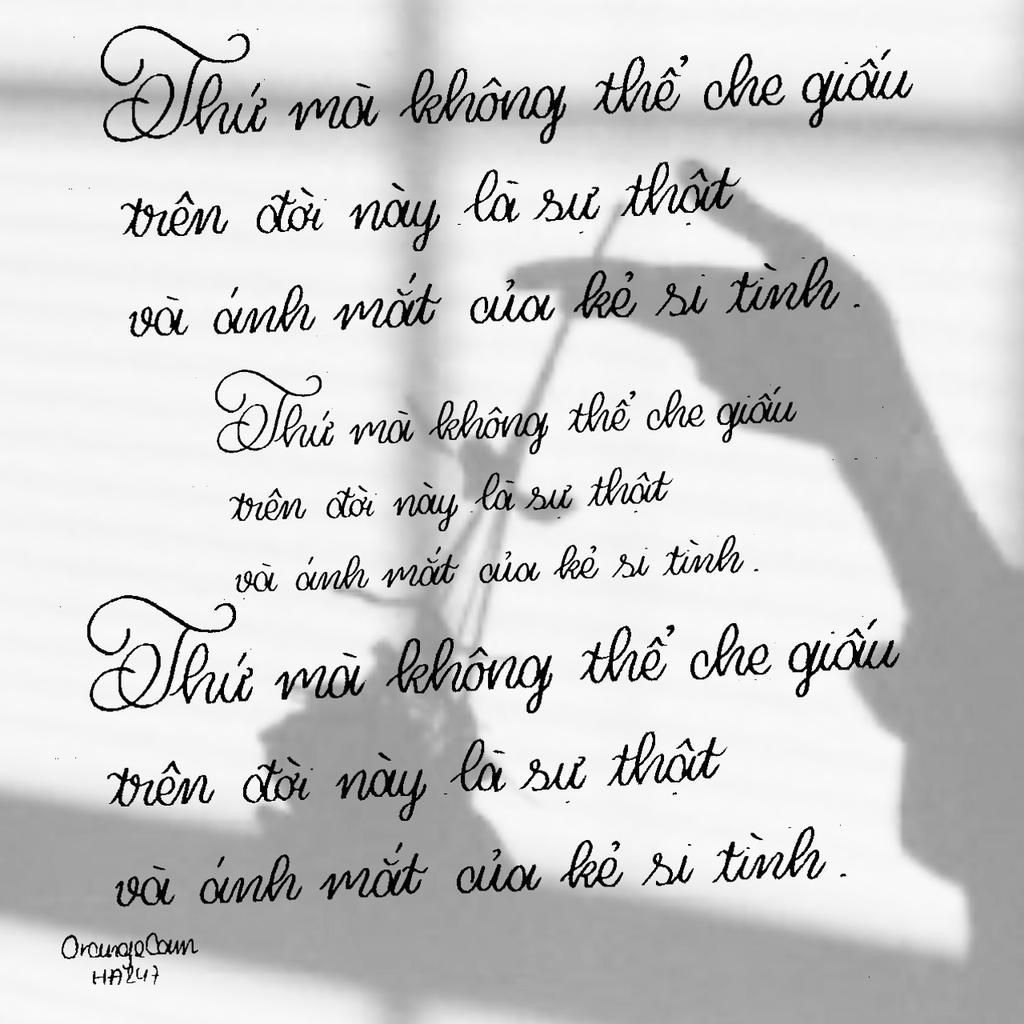 Thứ mà không thể che giấu
trên đời này là sự thật
và ánh mắt của kẻ si tình.
Thứ mà không thể che giấu
trên đời này là sự thật
và ánh mắt của kẻ si tình.
Thứ mà không thể che giấu
trên đời này là sự thật
và ánh mắt của kẻ si tình.
HA247